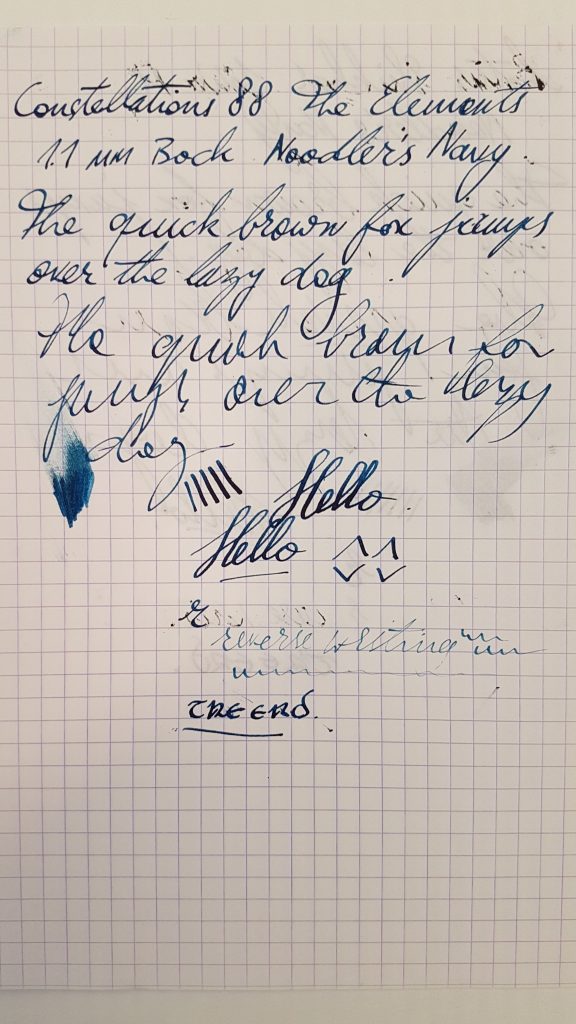 Constellations 88 The Elements
1.1 mm Bock Noodler's Navy.
The quick brown fox jumps
over the lazy dog.
The quick brown fox
jumps over the lazy
dog
Hello.
Hello
r
reverse writing